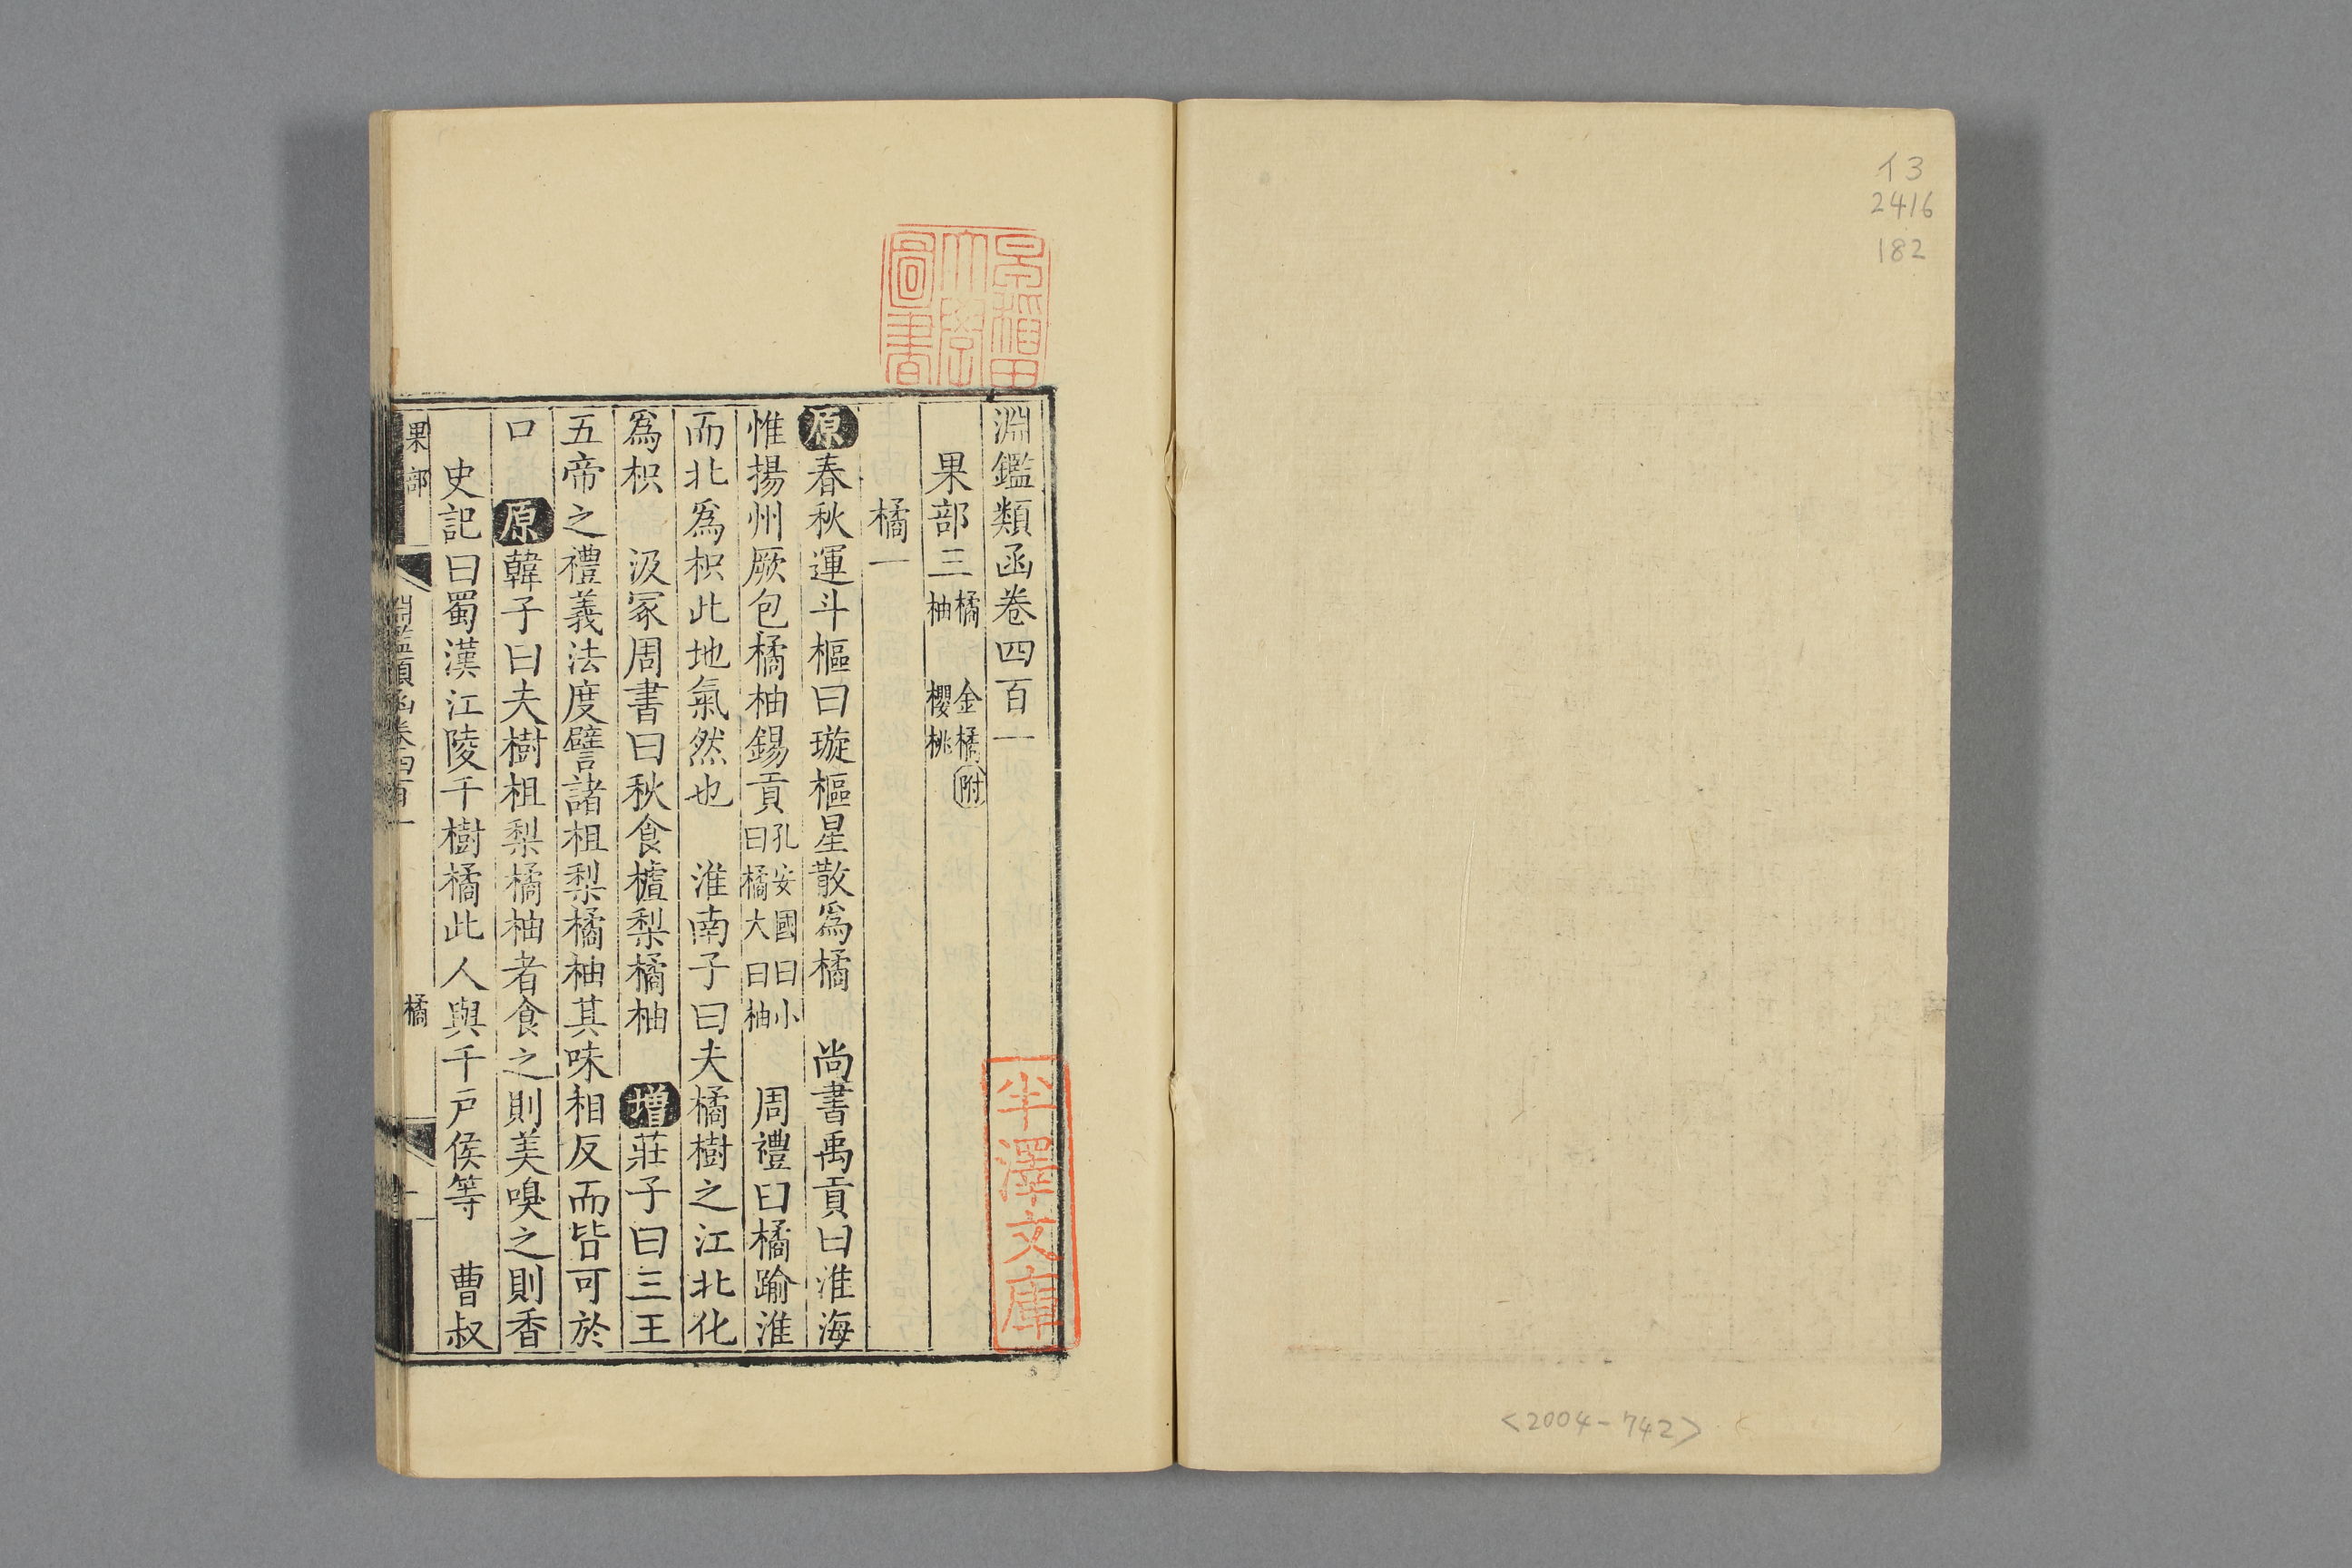 イ3
2416
182
<2004-742>
早稲田大學圖書
淵鑑類函卷四百一
果部三 橘 金橘附 柚 櫻桃
橘一
原春秋運斗樞曰璇樞星散爲橘 尚書禹貢曰淮海
惟揚州厥包橘柚錫貢 孔安國曰小曰橘大曰柚 周禮曰橘踰淮
而北爲枳此地氣然也 淮南子曰夫橘樹之江北化
爲枳 汲冢周書曰秋食樝梨橘柚 增莊子曰三王
五帝之禮義法度譬諸柤梨橘柚其味相反而皆可於
口 原韓子曰夫樹柤梨橘柚者食之則美嗅之則香
史記曰蜀漢江陵千樹橘此人與千戸侯等 曹叔
果部 淵鑑類函卷四百一 橘 一
半澤文庫